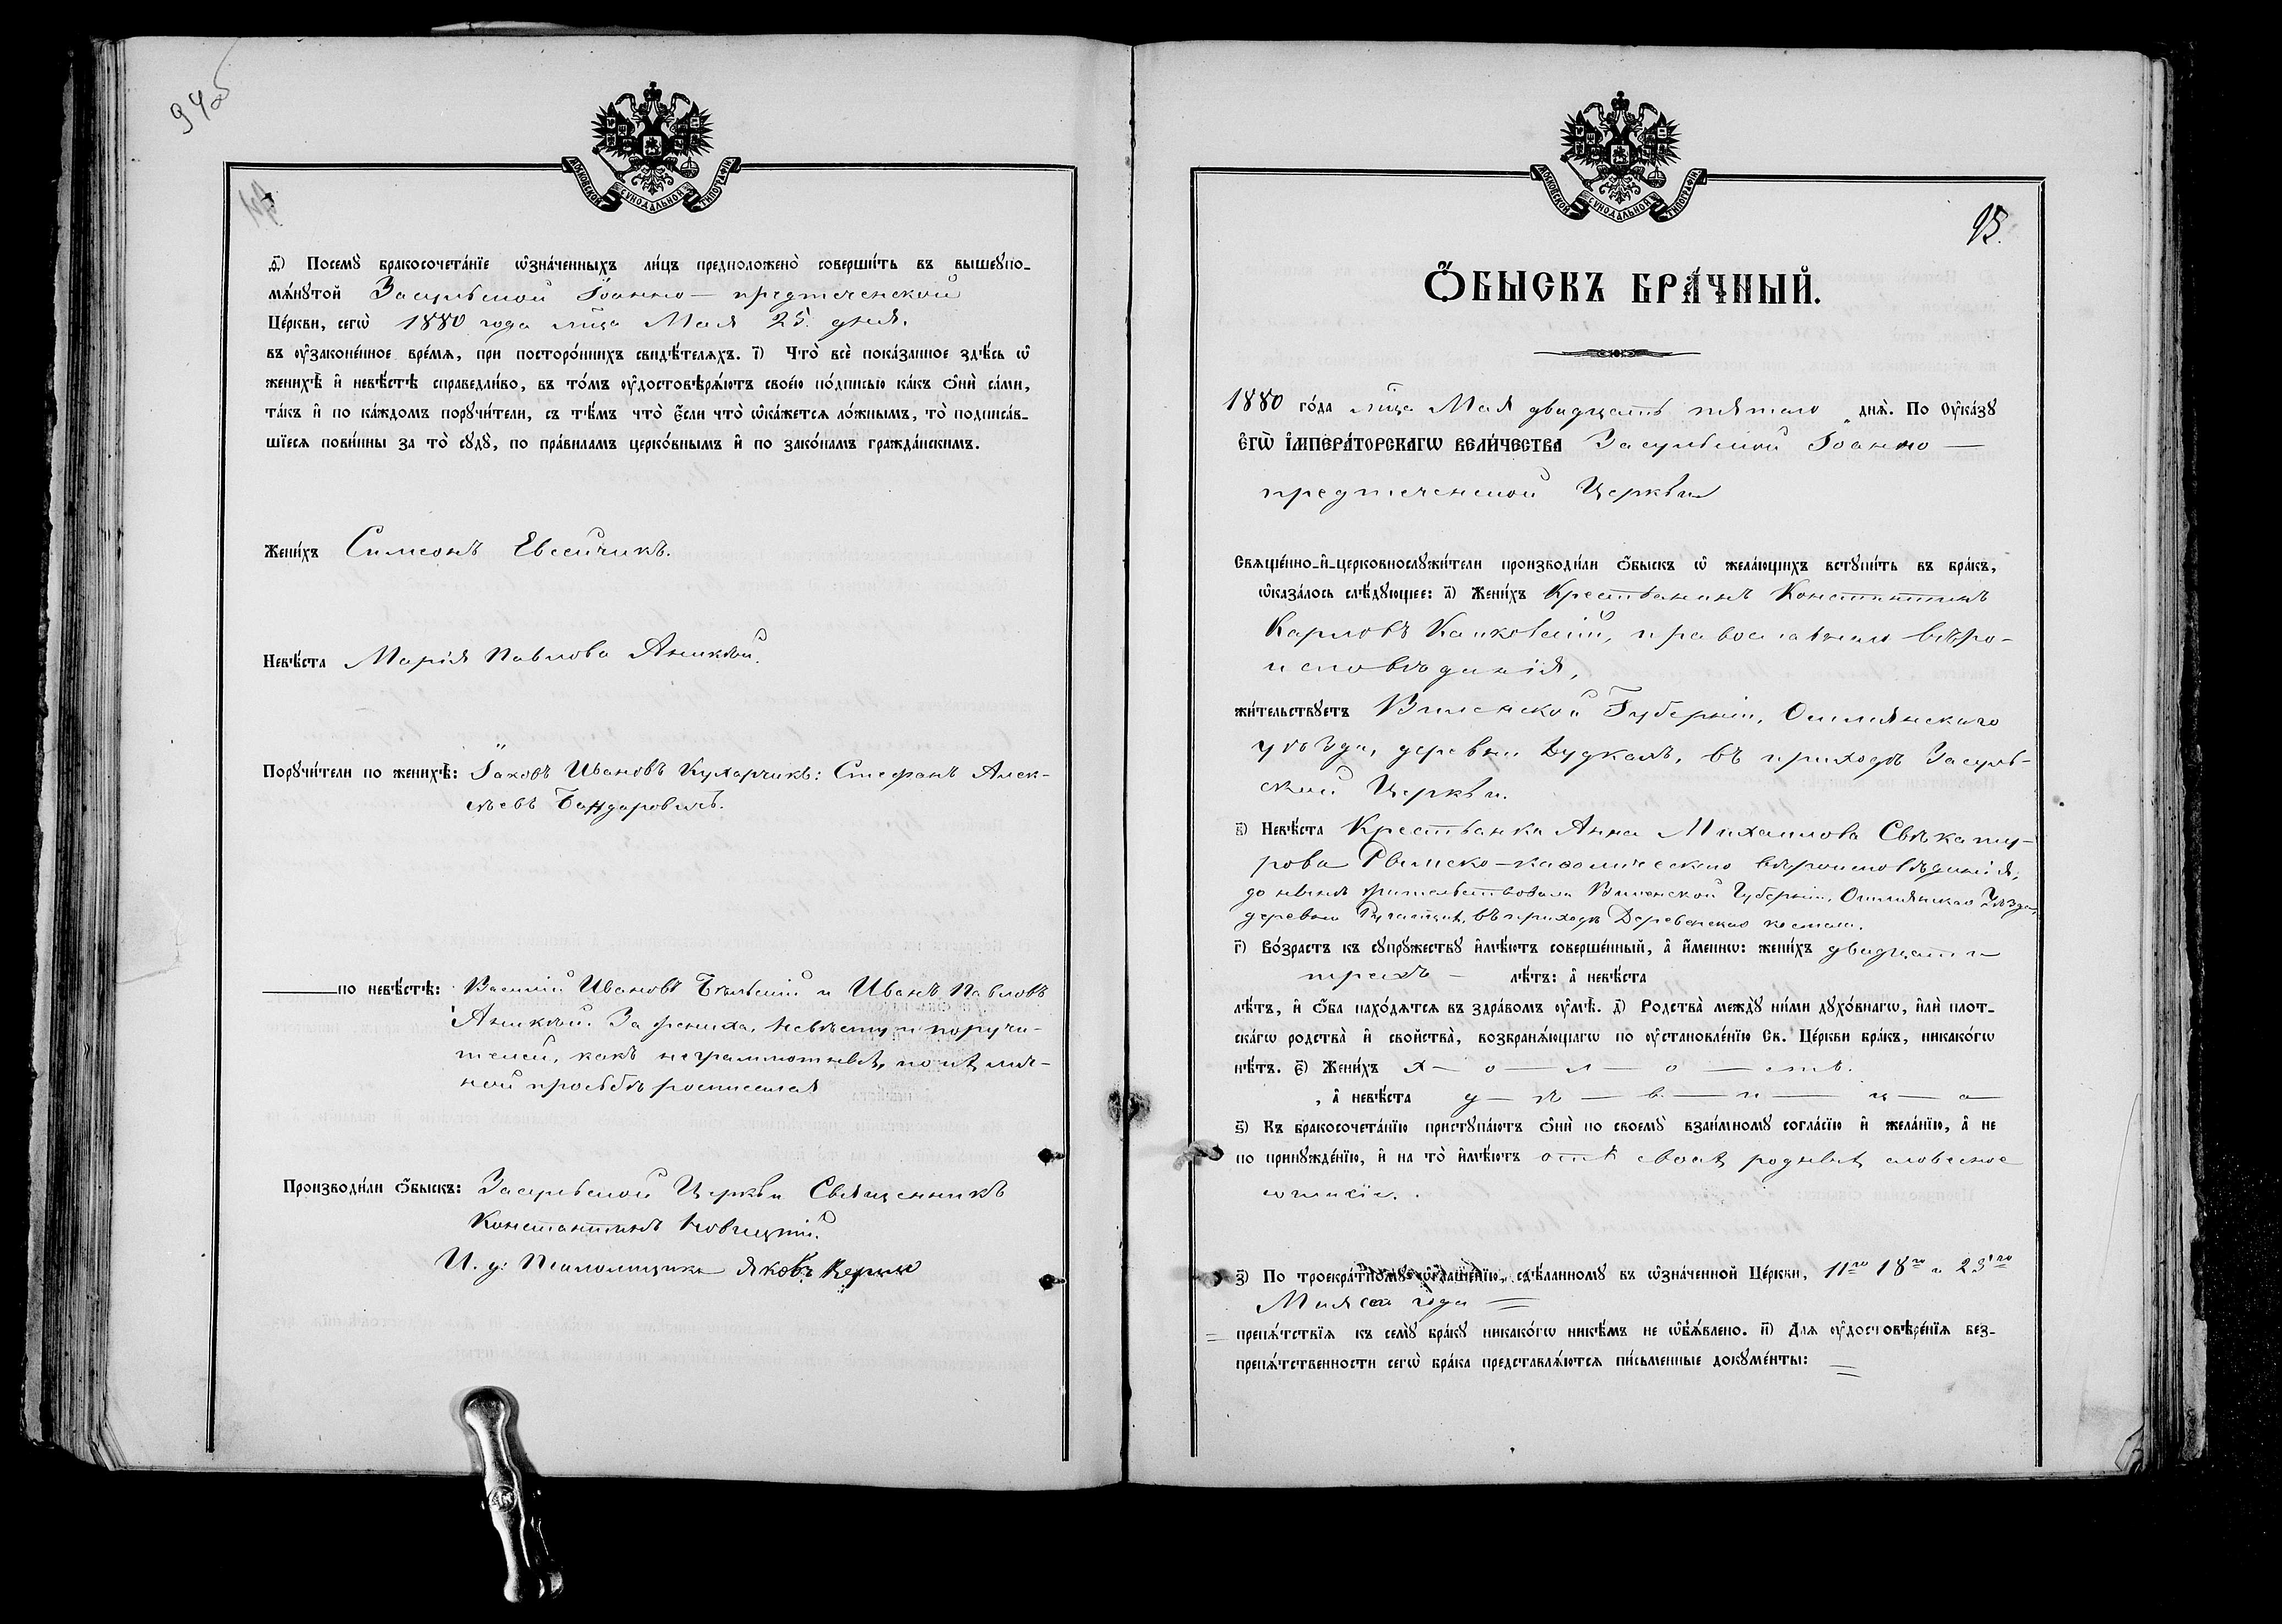 94об
МОСКОВСКОЙ СѴНОДАЛЬНОЙ ТИПОГРАФІИ
д҃і) Посемꙋ̀ бракосочета́нїе ѡ҆зна́ченныхъ ли́цъ предположено̀ соверши́ть въ вышеꙋпо-
мѧ́нꙋтой Засульской Іоанно-предтеченской
Це́ркви, сегѡ̀ 1880 года м-ца Мая 25. дня.
въ ᲂу҆зако́ненное вре́мѧ, при посторо́ннихъ свидѣ́телѧхъ. і҃) Что̀ всѐ пока́занное здѣ́сь ѡ҆
женихѣ̀ и҆ невѣ́стѣ справедли́во, въ то́мъ ᲂу҆достовѣрѧ́ютъ свое́ю по́дписью ка́къ ѻ҆нѝ са́ми,
та́къ и҆ по ка́ждомъ порꙋчи́тели, съ тѣ́мъ что̀ є҆́сли что̀ ѡ҆ка́жетсѧ ло́жнымъ, то̀ подписа́в-
шїесѧ пови́нны за то̀ сꙋдꙋ̀, по пра́виламъ церко́внымъ и҆ по зако́намъ гражда́нскимъ.
Жени́хъ Симеонъ Евсейчикъ.
Невѣ́ста Марія Павлова Аникѣй.
Порꙋчи́тели по женихѣ̀: Іаковъ Ивановъ Кухарчикъ: Стефанъ Алек-
сѣевъ Бандаровичъ.
по невѣ́стѣ: Василій Ивановъ Бѣльскій и Иванъ Павловъ
Аникѣй. За жениха, невѣсту и поручи-
телей, какъ неграммотныхъ, по ихъ лич-
ной просьбѣ росписался
Производи́ли ѻ҆́быскъ: Засульской Церкви Священникъ
Константинъ Новицкій.
И. д. Псаломщика Яковъ
МОСКОВСКОЙ СѴНОДАЛЬНОЙ ТИПОГРАФІИ
95.
Ѻ҆́БЫСКЪ БРА́ЧНЫЙ.
1880 го́да м-ца Мая двадцать пятаго днѧ̀. По Оу҆ка́зꙋ
Є҆гѡ̀ И҆мпера́торскагѡ Вели́чества Засульской Іоанно-
предтеченской Церкви
Свѧще́нно-и҆-церковнослꙋжи́тели производи́ли ѻ҆́быскъ ѡ҆ жела́ющихъ встꙋпи́ть въ бра́къ,
ѡ҆каза́лось слѣ́дꙋющее: а҃) Жени́хъ Крестьянинъ Константинъ
Карловъ православнаго вѣро-
исповѣданія,
жи́тельствꙋетъ Виленской Губерніи, Ошмянскаго
уѣзда, деревни Дудкахъ, въ приходѣ Засуль-
ской Церкви.
в҃) Невѣ́ста Крестьянка Анна Михаилова
Римско-католическаго вѣроисповѣданія,
до нынѣ жительствовала Виленской Губерніи, Ошмянскаго Уѣзда,
деревни въ приходѣ Деревенскаго костела.
г҃) Во́зрастъ къ сꙋпрꙋ́жествꙋ и҆мѣ́ютъ соверше́нный, а҆ и҆́меннѡ: жени́хъ двадцати
трехъ — лѣ́тъ: а҆ невѣ́ста
лѣ́тъ, и҆ ѻ҆́ба нахо́дѧтсѧ въ здра́вомъ ᲂу҆мѣ̀. д҃) Родства̀ междꙋ̀ ни́ми дꙋхо́внагѡ, и҆лѝ плот-
ска́гѡ родства̀ и҆ свойства̀, возбранѧ́ющагѡ по ᲂу҆становле́нїю Св. Це́ркви бра́къ, никако́гѡ
нѣ́тъ. є҃) Жени́хъ х — о — л — о — стъ.
, а҆ невѣ́ста д — ѣ — в — и — ц — а —
ѕ҃) Къ бракосочета́нїю пристꙋпа́ютъ ѻ҆нѝ по своемꙋ̀ взаи́мномꙋ согла́сїю и҆ жела́нїю, а҆ не
по принꙋжде́нїю, и҆ на то̀ и҆мѣ́ютъ отъ своихъ родныхъ словесное
согласіе.
з҃) По троекра́тномꙋ ѡ҆глаше́нїю, сдѣ́ланномꙋ въ ѡ҆зна́ченной Це́ркви, 11го 18го и 25го
Мая сего года =
препѧ́тствїѧ къ семꙋ̀ бра́кꙋ никако́гѡ никѣ́мъ не ѡ҆б̾ѧ́влено. и҃) Длѧ ᲂу҆достовѣре́нїѧ без-
препѧ́тственности сегѡ̀ бра́ка представлѧ́ютсѧ пи́сьменные докꙋме́нты: =